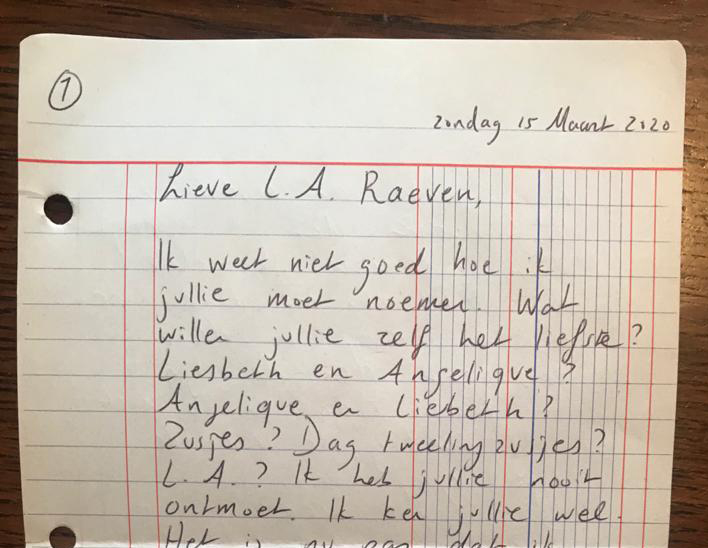 1
zondag 15 Maart 2020
Lieve L.A. Raeven,
Ik weet niet goed hoe ik
jullie moet noemen. Wat
willen jullie zelf het liefste?
Liesbeth en Angelique?
Angelique en Liebeth?
Zusjes? Dag tweelingzusjes?
L.A.? Ik heb jullie nooit
ontmoet. Ik ken jullie wel.
Het is nu een dat ik